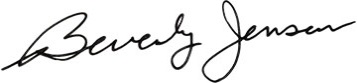 Beverly Jensen